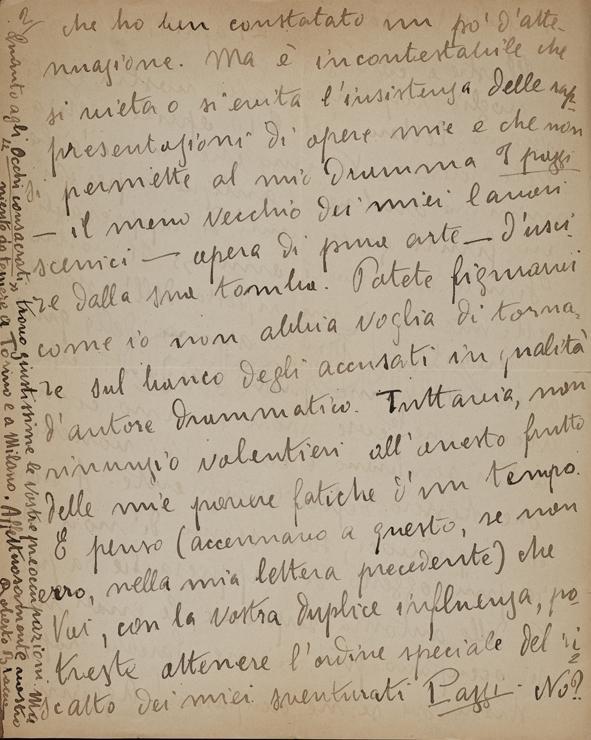 2)
che ho ben constatato un po' d'atte-
nuazione. Ma è incontestabile che
si vieta o si evita l'insistenza delle rap-
presentazioni di opere mie e che non si
permette al mio dramma I pazzi
— il meno vecchio dei miei lavori
scenici — opera di pura arte — d'usci-
re dalla sua tomba. Potete figurarvi
come io non abbia voglia di torna-
re sul banco degli accusati in qualità
d'autore drammatico. Tuttavia, non
rinunzio volentieri all'onesto frutto
delle mie povere fatiche d'un tempo.
E penso (accennavo a questo, se non
erro, nella mia lettera precedente) che
Voi, con la vostra duplice influenza, po-
treste ottenere l'ordine speciale del ri-
scatto dei miei sventurati Pazzi. No?
Quanto agli "Occhi consacrati", trovo giustissime le vostre preoccupazioni. Ma
niente da temere a Torino e a Milano. Affettuosamente vostro
Roberto Bracco